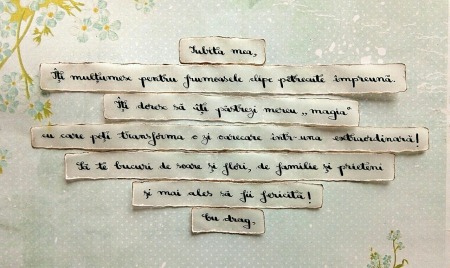 Iubita mea,
Îți mulțumesc pentru frumoasele clipe petrecute împreună.
Îți doresc să îți păstrezi mereu „magia"
cu care poți transforma o zi oarecare într-una extraordinară!
Să te bucuri de soare și flori, de familie și prieteni
și mai ales să fii fericită!
Cu drag,